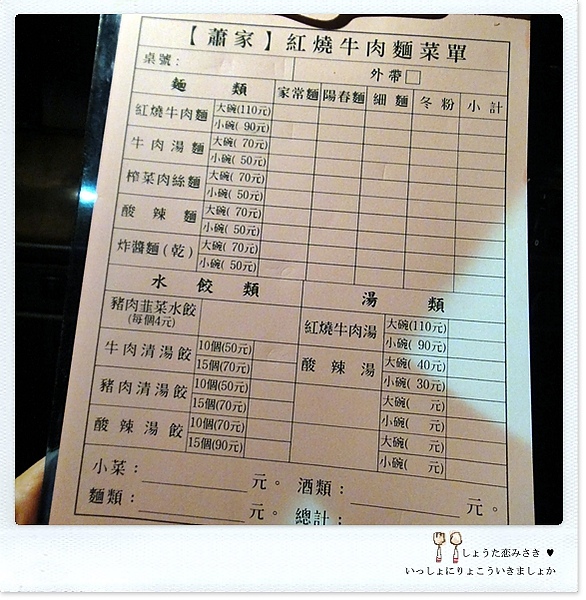 【蕭家】紅燒牛肉麵菜單
桌號:
外帶□
麵類 家常麵 陽春麵 細麵 冬粉 小計
紅燒牛肉麵 大碗(110元)
小碗( 90元)
牛肉湯麵 大碗( 70元)
小碗( 50元)
榨菜肉絲麵 大碗( 70元)
小碗( 50元)
酸辣麵 大碗( 70元)
小碗( 50元)
炸醬麵(乾) 大碗( 70元)
小碗( 50元)
水餃類
豬肉韭菜水餃
(每個4元)
牛肉清湯餃 10個(50元)
15個(70元)
豬肉清湯餃 10個(50元)
15個(70元)
酸辣湯餃 10個(70元)
15個(90元)
湯類
紅燒牛肉湯 大碗(110元)
小碗( 90元)
酸辣湯 大碗( 40元)
小碗( 30元)
大碗( 元)
小碗( 元)
大碗( 元)
小碗( 元)
小菜:________元。 酒類:________元。
麵類:________元。 總計:
しょうた恋みさき ♥
いっしょにりょこういきましょか